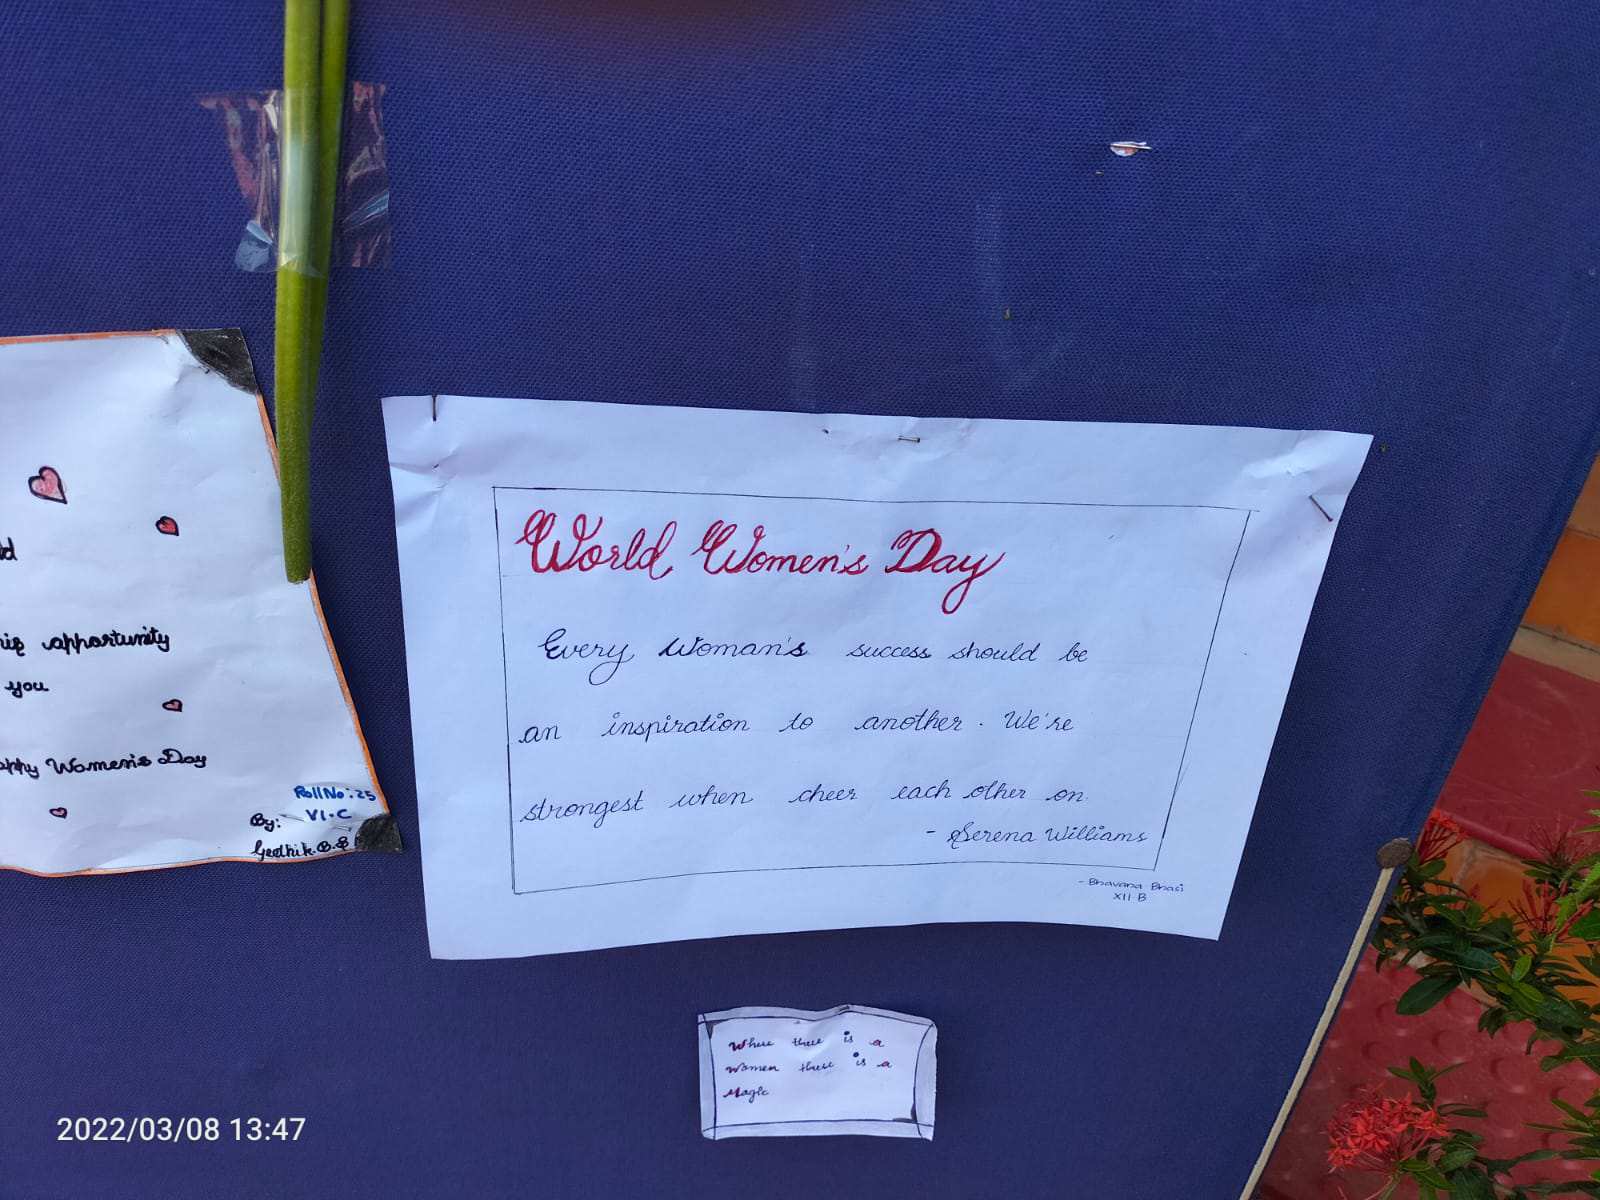 opportunity
you
Women's Day
Roll No: 25
VI.C
By:
World Women's Day
Every Woman's success should be
an inspiration to another. We're
strongest when cheer each other on.
- Serena Williams
- Bhavana Bhasi
XII B
Where there is a
women there is a
Magic
2022/03/08 13:47